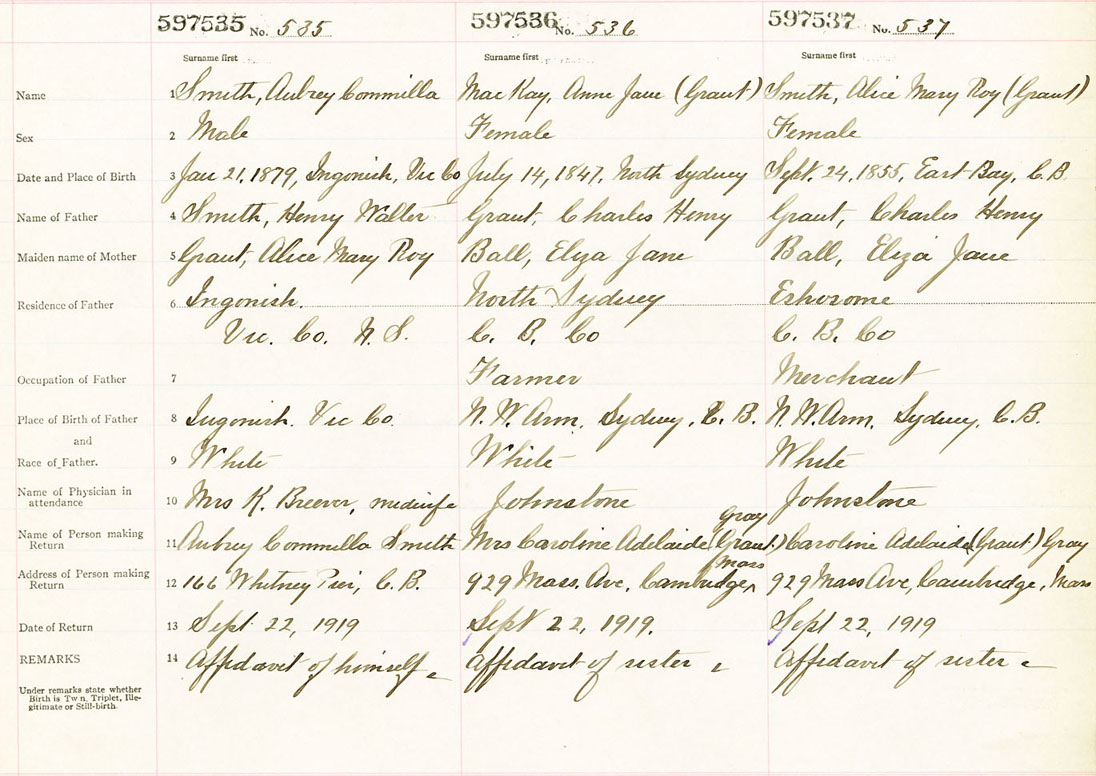 597535 No. 535 597536 No. 536 597537 No. 537
Surname first Surname first Surname first
Name 1 Smith, Aubrey Commilla MacKay, Anne Jane (Grant) Smith, Alice Mary Roy (Grant)
Sex 2 Male Female Female
Date and Place of Birth 3 Jan 21, 1879, Ingonish, Vic Co July 14, 1847, North Sydney Sept. 24, 1855, East Bay, C.B.
Name of Father 4 Smith, Henry Walter Grant, Charles Henry Grant, Charles Henry
Maiden name of Mother 5 Grant, Alice Mary Roy Ball, Eliza Jane Ball, Eliza Jane
Residence of Father 6 Ingonish. North Sydney
Vic. Co. N.S. C. B. Co C. B. Co
Occupation of Father 7 Farmer Merchant
Place of Birth of Father 8 Ingonish. Vic Co. N.W. Arm, Sydney, C.B. N.W. Arm, Sydney, C.B.
and
Race of Father. 9 White White White
Name of Physician in
attendance 10 Mrs K. Brewer, midwife Johnstone Johnstone
Gray
Name of Person making
Return 11 Aubrey Commilla Smith Mrs Caroline Adelaide (Grant) Caroline Adelaide (Grant) Gray
Mass
Address of Person making
Return 12 166 Whitney Pier, C.B. 929 Mass. Ave, Cambridge, 929 Mass Ave, Cambridge, Mass
Date of Return 13 Sept 22, 1919 Sept 22, 1919. Sept 22, 1919
REMARKS 14 Affidavit of himself Affidavit of sister Affidavit of sister
Under remarks state whether
Birth is Twin, Triplet, Ille-
gitimate or Still-birth.